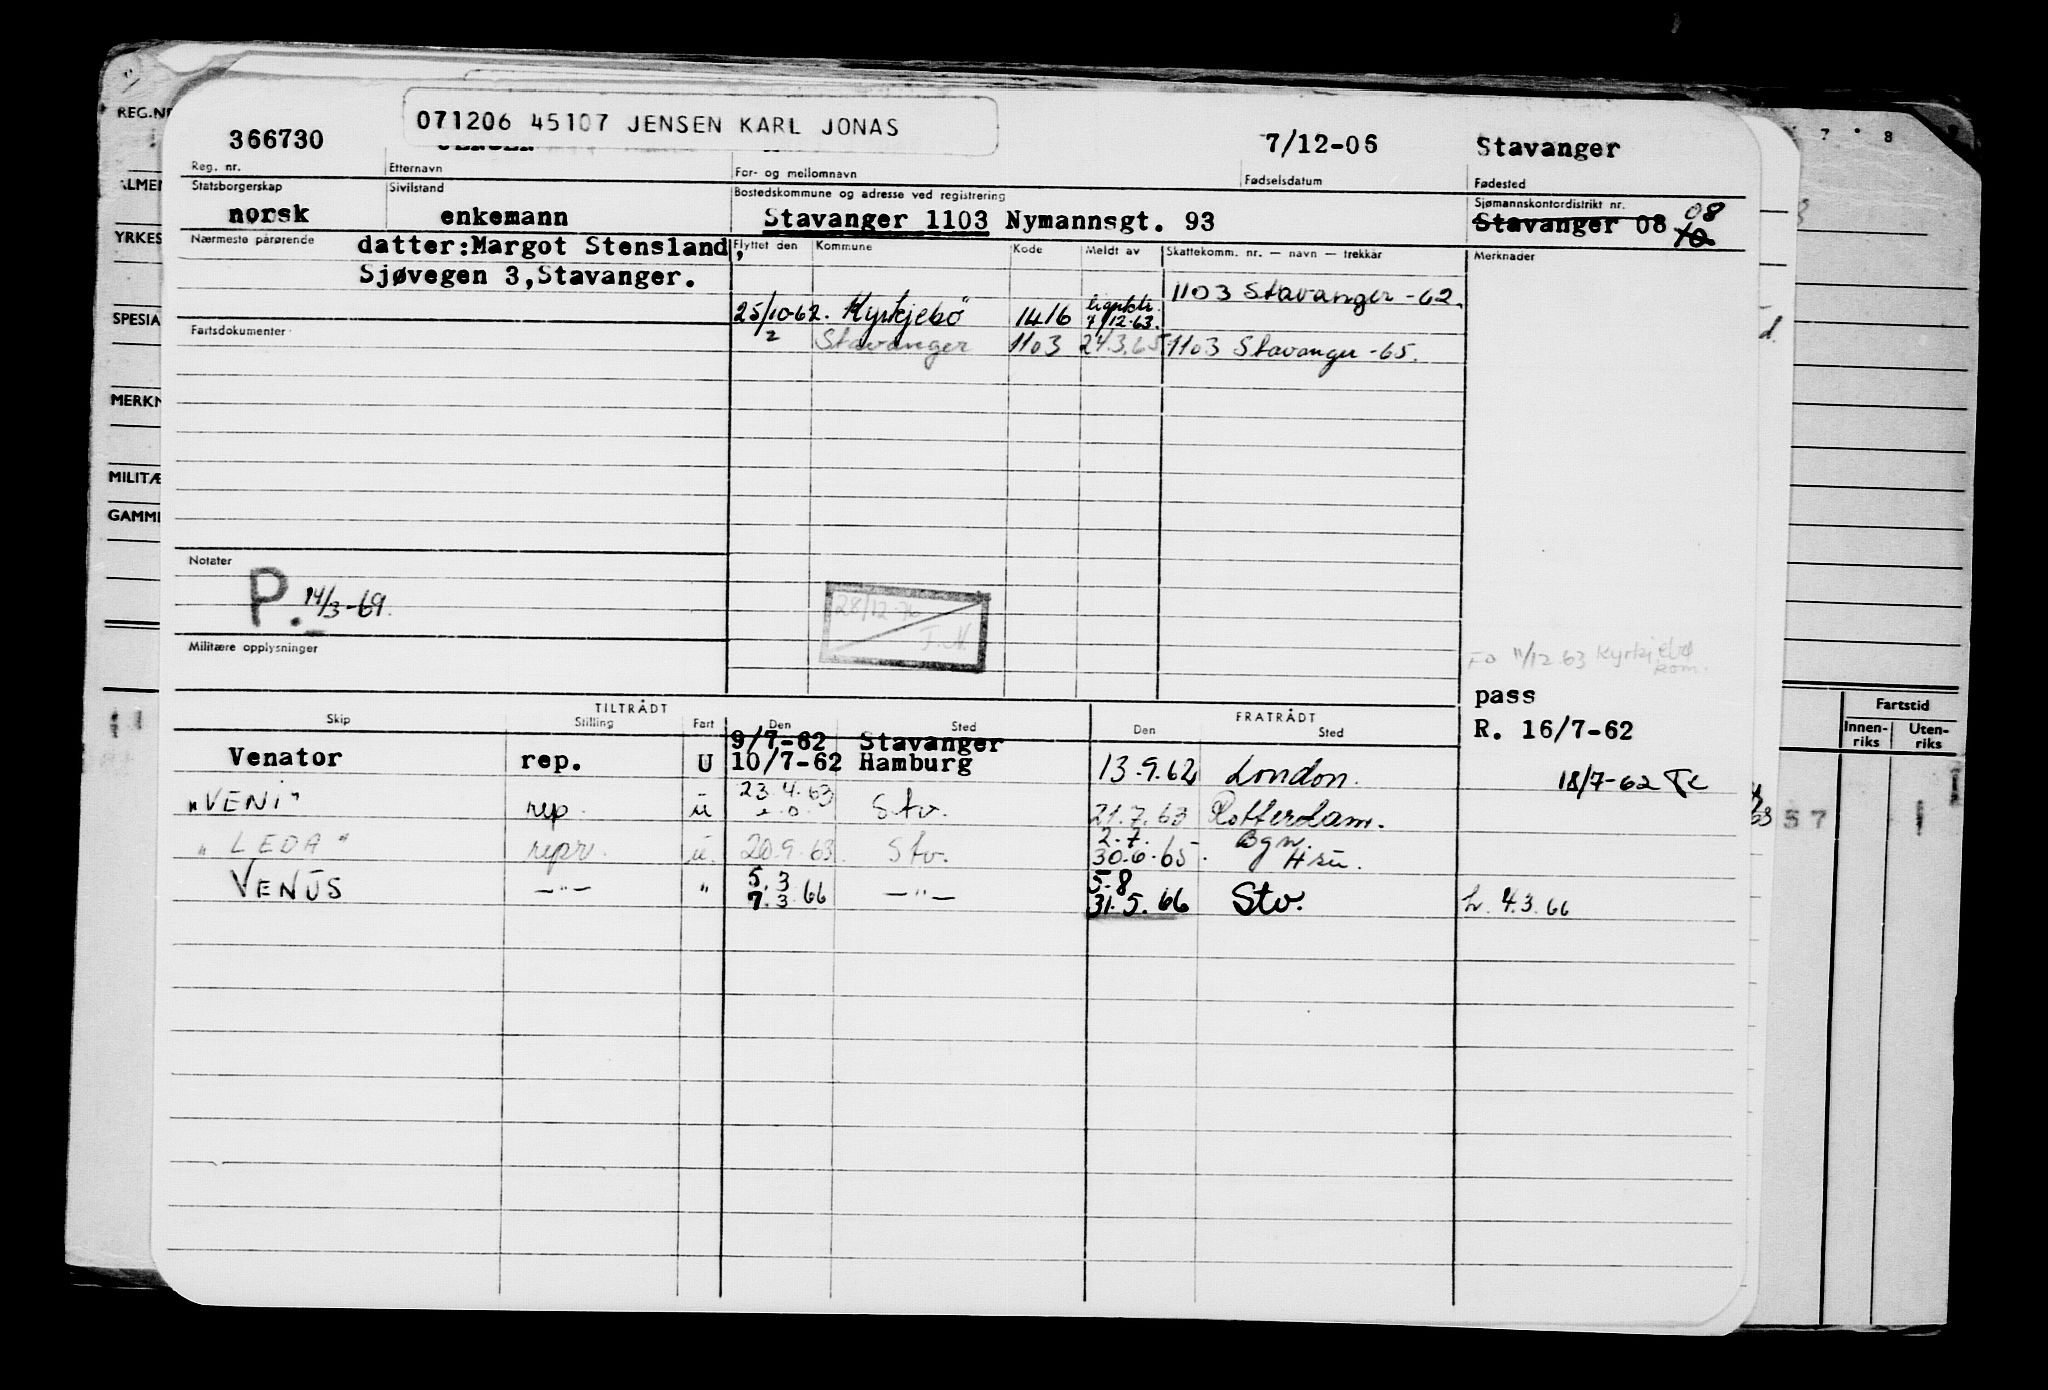 071206 45107 JENSEN KARL JONAS
366730 7/12-06 Stavanger
Reg. nr. Etternavn For- og mellomnavn Fødselsdatum Fødested
Statsborgerskap Sivilstand Bostedskommune og adresse ved registrering Sjømannskontordistrikt nr.
norsk enkemann Stavanger 1103 Nymannsgt. 93 Stavanger 08 10 08
Nærmeste pårørende datter:Margot Stensland, Flyttet den Kommune Kode Meldt av Skattekomm. nr. — navn — trekkår Merknader
Sjøvegen 3,Stavanger.
1103 Stavanger -62.
25/10-62. Kyrkjebö 1416 7/12-63.
Fartsdokumenter
1/2 Stavanger 1103 24.3.65 1103 Stavanger -65.
Notater
P. 14/3-69.
28/12-76
T.N.
Militære opplysninger
Fo 11/12 63 Kyrkjebø kom.
pass
R. 16/7-62
TILTRÅDT FRATRÅDT
Skip Stilling Fart Den Sted Den Sted
9/7-62 Stavanger
Venator rep. U 10/7-62 Hamburg 13.9.62 London. 18/7-62
"VENI" rep. u 23.4.63 Stv. 21.7.63 Rotterdam.
2.7. Bgn.
"LEDA" repr. u. 20.9.63. Stv. 30.6.65.
5.3 5-8
VENUS —"— " 7.3.66 —"— 31.5.66 Stv. L. 4.3.66
REG.NR
ALMEN
YRKES
SPESIA
MERKN
MILITÆ
GAMME
7 8
Fartstid
Innen-
riks
Uten-
riks
57